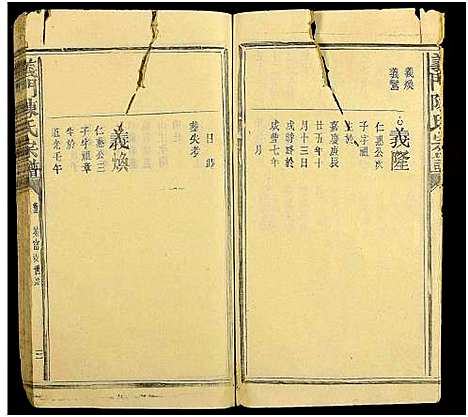 義門陳氏宗譜
義煥
義鸞
義隆
仁惠公次
子字祖
生於
嘉慶庚辰
廿五年十
月十三日
戌時終於
咸豐七年
月
日時
葬失考
義煥
仁惠公三
子字祖章
生於
道光壬午
義門陳氏宗譜
三